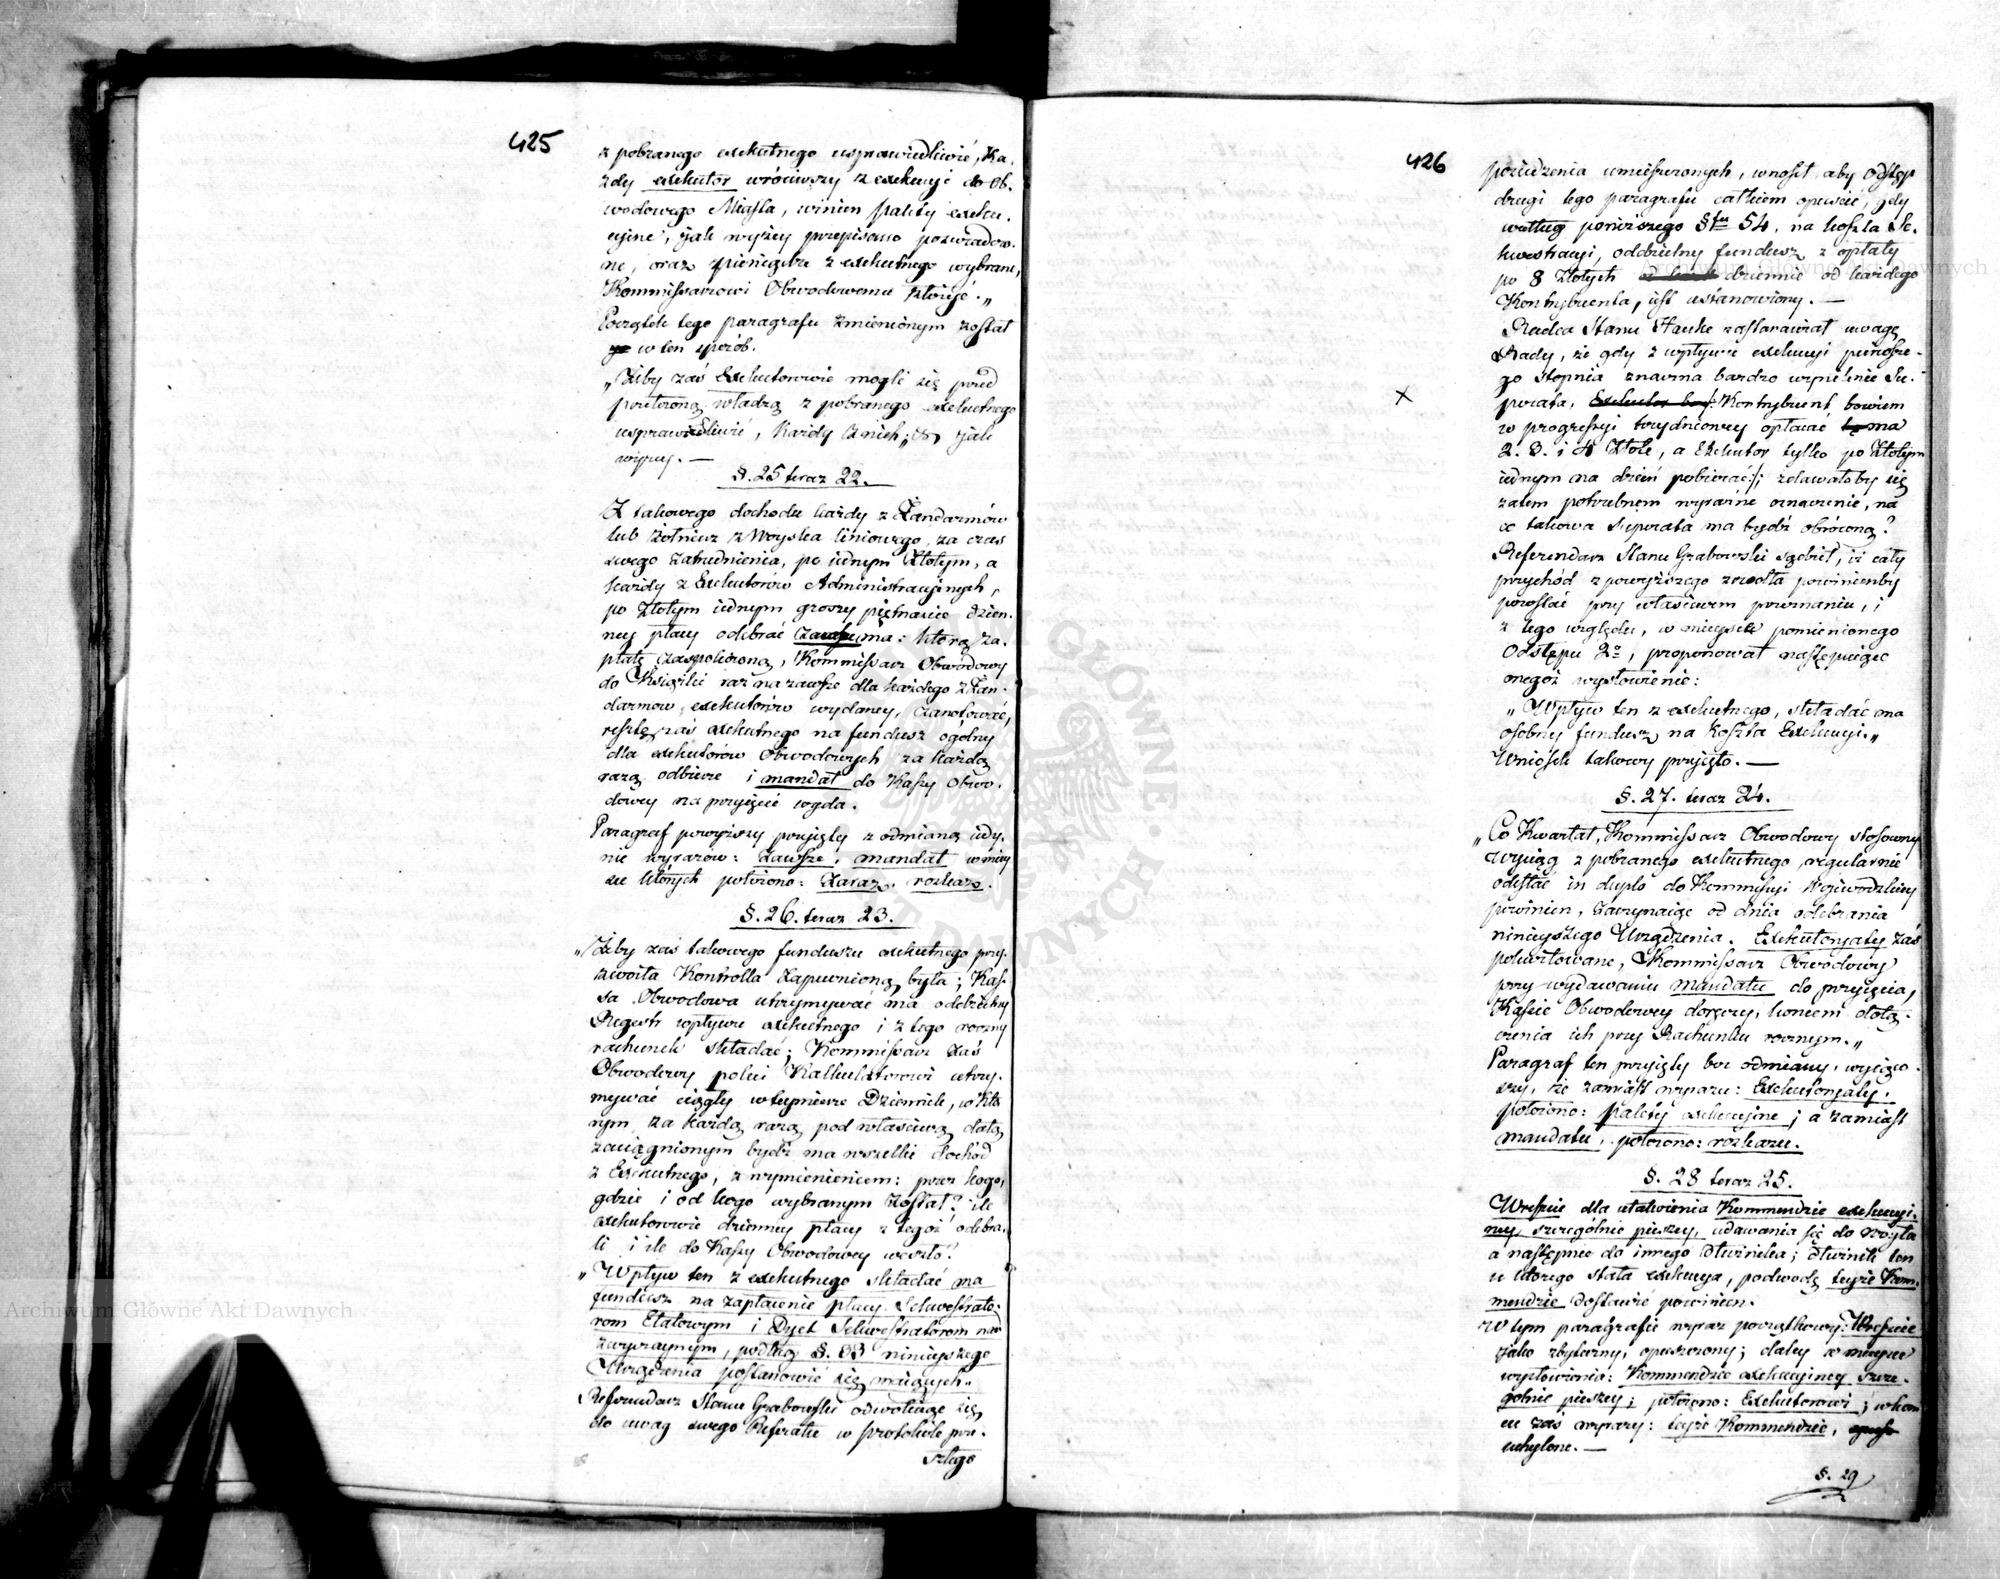 425
z pobranego exekutnego usprawiedliwić, Ka-
żdy exekutor wróciwszy z exekucyi do Ob-
wodowego Miasta, winien palety exeku-
cyine, jak wyżey przepisano poświadczo-
ne, oraz pieniądze z exekutnego wybrane,
Kommissarzowi Obwodowemu złożyć."
Początek tego paragrafu zmienionym został
w ten sposób.
„Żeby zaś Exekutorowie mogli się przed
przełożoną władzą z pobranego exekutnego
usprawiedliwić, każdy z nich, jak
wyżey. —
§. 25 teraz 22.
Z takowego dochodu każdy z Żandarmów
lub żołnierz z Woyska liniowego, za czas
swego zatrudnienia, po iednym Złotym, a
każdy z Exekutorów Administracyinych,
po Złotym iednym groszy piętnaście dzien-
ney płacy odebrać zawsze ma: którą za-
płatę zaspokoioną, Kommissarz Obwodowy
do Książki raz na zawsze dla każdego z Żan-
darmów, exekutorów wydaney, zanotować,
resztę zaś exekutnego na fundusz ogólny
dla exekutorów Obwodowych za każdą
razą odbierze i mandat do Kassy Obwo-
dowey na przyięcie wyda.
Paragraf powyższy przyięty z odmianą iedy-
nie wyrazów: zawsze, mandat w miey-
sce których położono: zaraz, rozkaz.
§. 26. teraz 23.
„Żeby zaś takowego funduszu exekutnego przy-
zwoita Kontrolla zapewnioną była; Kas-
sa Obwodowa utrzymywać ma oddzielny
Regestr wpływu exekutnego i z tego roczny
rachunek składać; Kommissarz zaś
Obwodowy poleci Kalkulatorowi utrzy-
mywać ciągły w teymierze Dziennik, w któ-
rym za każdą razą pod właściwą datą
zaciągnionym bydź ma wszelki dochód
z Exekutnego, z wymienieniem: przez kogo,
gdzie i od kogo wybranym został? ile
exekutorowie dzienney płacy z tegoż odebra-
li i ile do Kassy Obwodowey weszło?
„Wpływ ten z exekutnego składać ma
fundusz na zapłacenie płacy Sekwestrato-
rom Etatowym i Dyet Sekwestratorom nad-
zwyczaynym, podług §. 53 ninieyszego
Urządzenia postanowić się maiących."
Referendarz Stanu Grabowski odwołuiąc się
do uwag swego Referatu w protokóle prze-
szłego
426
posiedzenia umieszczonych, wnosił, aby odstęp
drugi tego paragrafu całkiem opuścić, gdy
według poniższego §fu 54, na koszta Se-
kwestracyi, oddzielny fundusz z opłaty
po 8 Złotych dziennie od każdego
Kontrybuenta, iest ustanowiony. —
Radca Stanu Hauke zastanawiał uwagę
Rady, że gdy z wpływu exekucyi pierwsze-
go stopnia znaczna bardzo wyniknie Su-
perata, /: Kontrybuent bowiem
w progressyi trzydniowey opłacać ma
2. 3. i 4 Złote, a Exekutor tylko po Złotym
iednym na dzień pobierać :/; zdawałoby się
zatem potrzebnem wyraźne oznaczenie, na
co takowa superata ma bydź obróconą?
Referendarz Stanu Grabowski sądził, iż cały
przychód z powyższego źródła powinienby
pozostać przy właściwem przeznaczeniu, i
z tego względu, w mieysce pomienionego
Odstępu 2go, proponował następuiące
onegoż wysłowienie:
„Wpływ ten z exekutnego, składać ma
osobny fundusz na koszta Exekucyi."
Wniosek takowy przyięto. —
§. 27. teraz 24.
„Co Kwartał, Kommissarz Obwodowy stosowny
wyciąg z pobranego exekutnego regularnie
odesłać in duplo do Kommissyi Woiewódzkiey
powinien, zaczynaiąc od dnia odebrania
ninieyszego Urządzenia. Exekutoryały zaś
pokwitowane, Kommissarz Obwodowy
przy wydawaniu mandatu do przyięcia,
Kassie Obwodowey doręczy, końcem dołą-
czenia ich przy Rachunku rocznym."
Paragraf ten przyięty bez odmiany, wyiąw-
szy, że zamiast wyrazu: Exekutoryały,
położono: palety exekucyine; a zamiast
mandatu, położono: rozkazu.
§. 28 teraz 25.
Wreszcie dla ułatwienia Kommendzie exekucyi-
ney, szczególnie pieszey, udawania się do Woyta
a następnie do innego dłużnika; dłużnik ten
u którego stała exekucya, podwodę teyże Kom-
mendzie dostawić powinien.
W tym paragrafie wyraz początkowy: Wreszcie
jako zbyteczny, opuszczony; daley w mieysce
wysłowienia: Kommendzie exekucyiney szcze-
gólnie pieszey; położono: Exekutorowi; w koń-
cu zaś wyrazy: teyże Kommendzie,
uchylone. —
§. 29